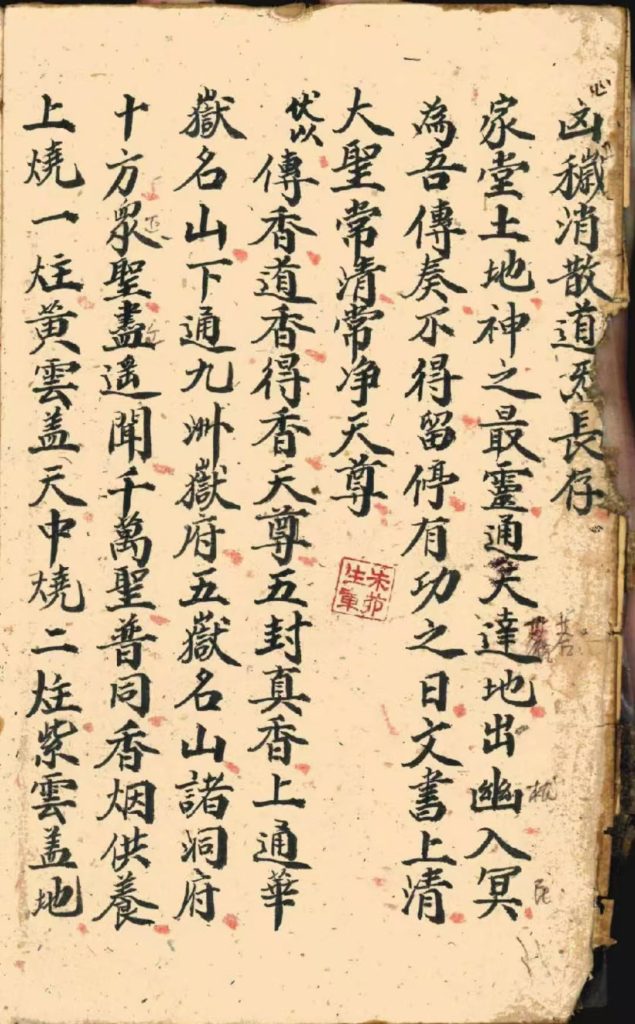 凶穢消散道炁長存
家堂土地神之最靈通天達地出幽入冥
為吾傳奏不得留停有功之日文書上清
大聖常清常净天尊
伏以
傳香道香得香天尊五封真香上通華
嶽名山下通九州嶽府五嶽名山諸洞府
十方衆聖盡遥聞千萬聖普同香烟供養
上燒一炷黃雲盖天中燒二炷紫雲盖地